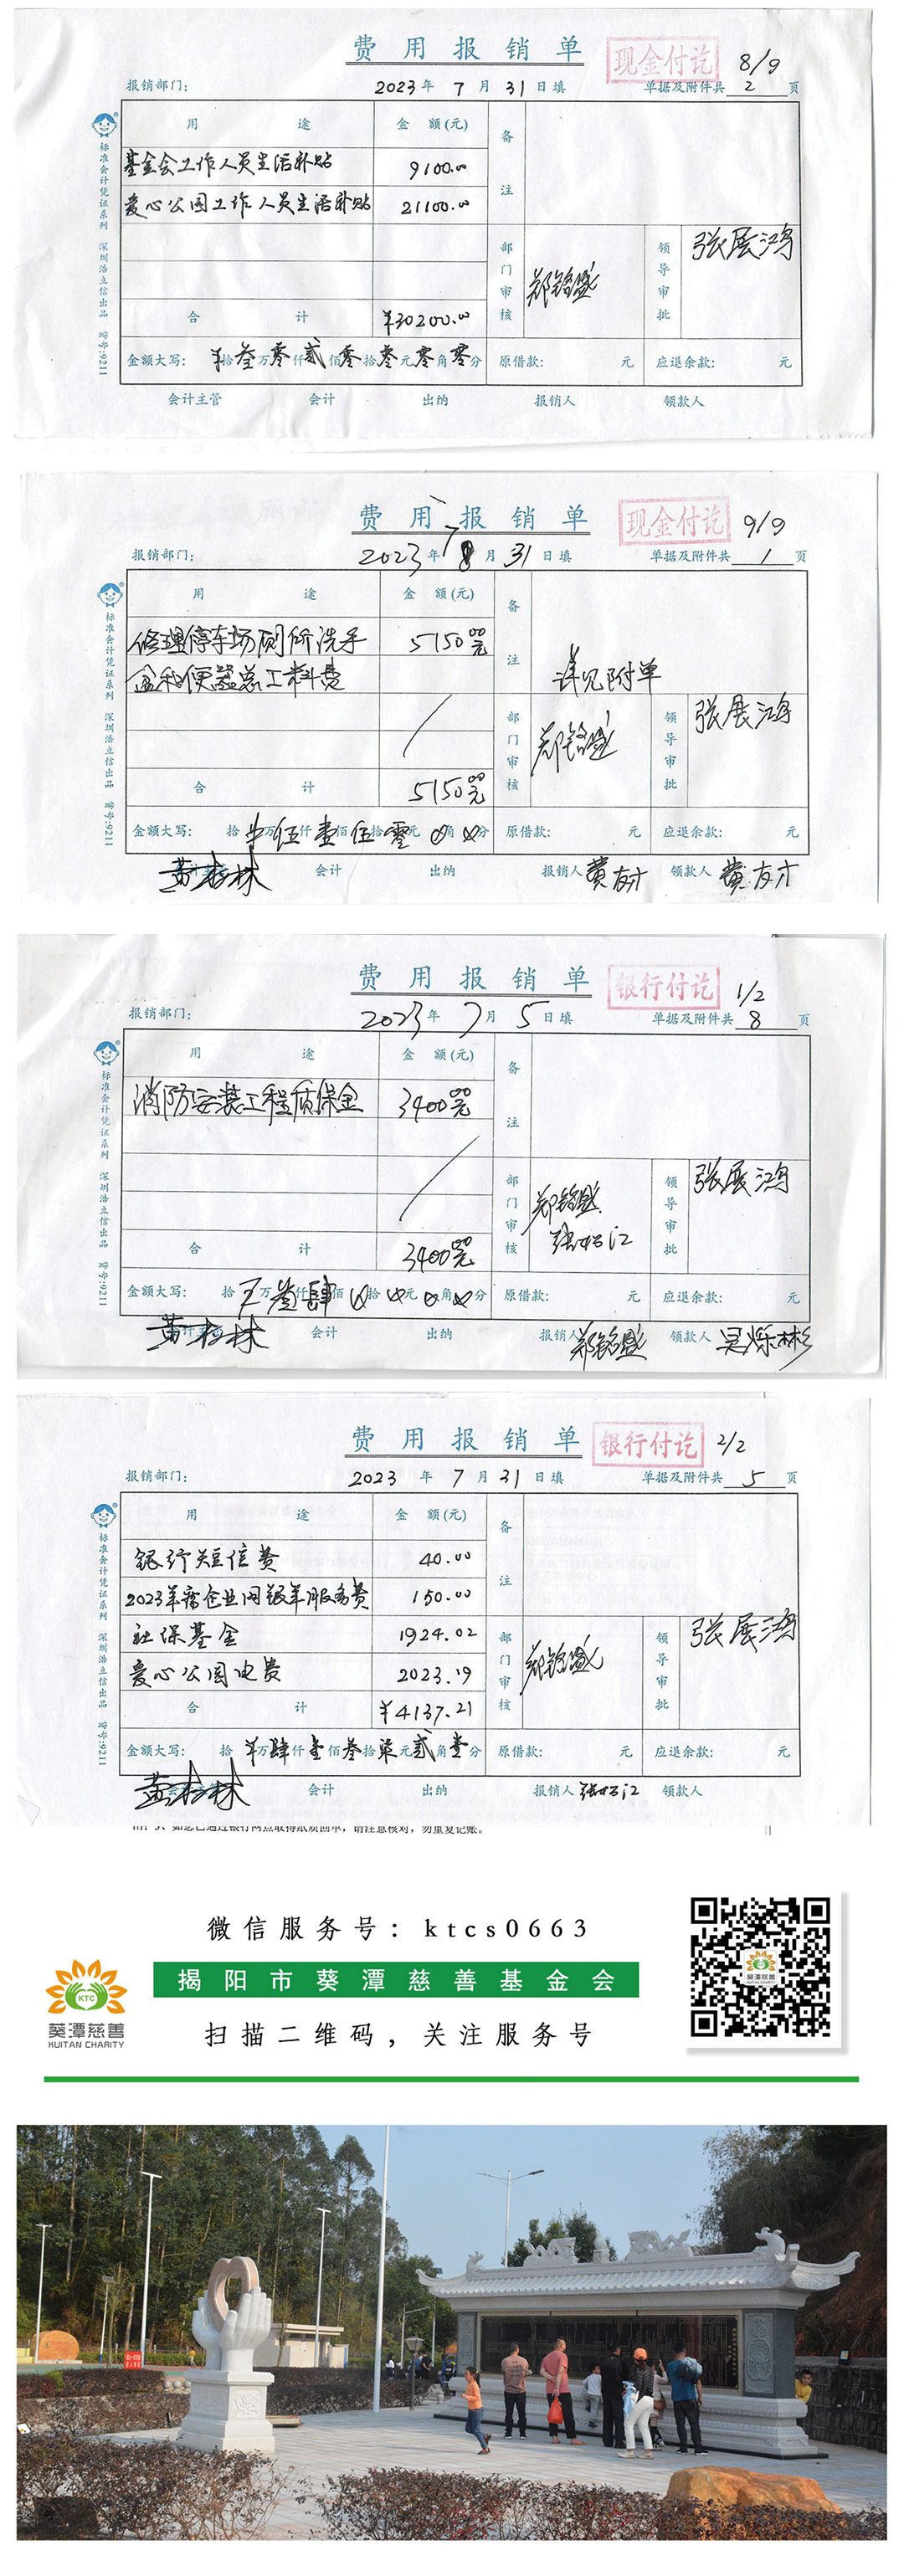 费用报销单
现金付讫
8/9
报销部门:
2023年7月31日填
单据及附件共2页
用途
金额(元)
备注
基金会工作人员生活补贴
9100.00
爱心公园工作人员生活补贴
21100.00
部门审核
郑铭盛
领导审批
张展鸿
合计
¥30200.00
金额大写: 拾叁万零仟贰佰零拾零元零角零分
原借款: 元
应退余款: 元
会计主管
会计
出纳
报销人
领款人
标准会计凭证系列 深圳浩立信出品 货号:9211
费用报销单
现金付讫
9/9
报销部门:
2023年7月31日填
单据及附件共1页
用途
金额(元)
备注
修理停车场厕所洗手
5150元
盆和便器总工料费
详见附单
部门审核
郑铭盛
领导审批
张展鸿
合计
5150元
金额大写: 拾万伍仟壹佰伍拾零元0角0分
原借款: 元
应退余款: 元
会计
出纳
报销人 黄友才
领款人 黄友才
标准会计凭证系列 深圳浩立信出品 货号:9211
费用报销单
银行付讫
1/2
报销部门:
2023年7月5日填
单据及附件共8页
用途
金额(元)
备注
消防安装工程质保金
3400元
部门审核
郑铭盛
领导审批
张展鸿
合计
3400元
金额大写: 拾万叁仟肆佰0拾0元0角0分
原借款: 元
应退余款: 元
会计
出纳
报销人 郑铭盛
领款人 吴烁彬
标准会计凭证系列 深圳浩立信出品 货号:9211
费用报销单
银行付讫
2/2
报销部门:
2023年7月31日填
单据及附件共5页
用途
金额(元)
备注
银行短信费
40.00
2023年度企业网银年服务费
150.00
社保基金
1924.02
爱心公园电费
2023.19
部门审核
郑铭盛
领导审批
张展鸿
合计
¥4137.21
金额大写: 拾万肆仟壹佰叁拾柒元贰角壹分
原借款: 元
应退余款: 元
会计
出纳
报销人
领款人
标准会计凭证系列 深圳浩立信出品 货号:9211
微信服务号：ktcs0663
揭阳市葵潭慈善基金会
扫描二维码，关注服务号
KTC
葵潭慈善
KUITAN CHARITY
葵潭慈善
KUITAN CHARITY